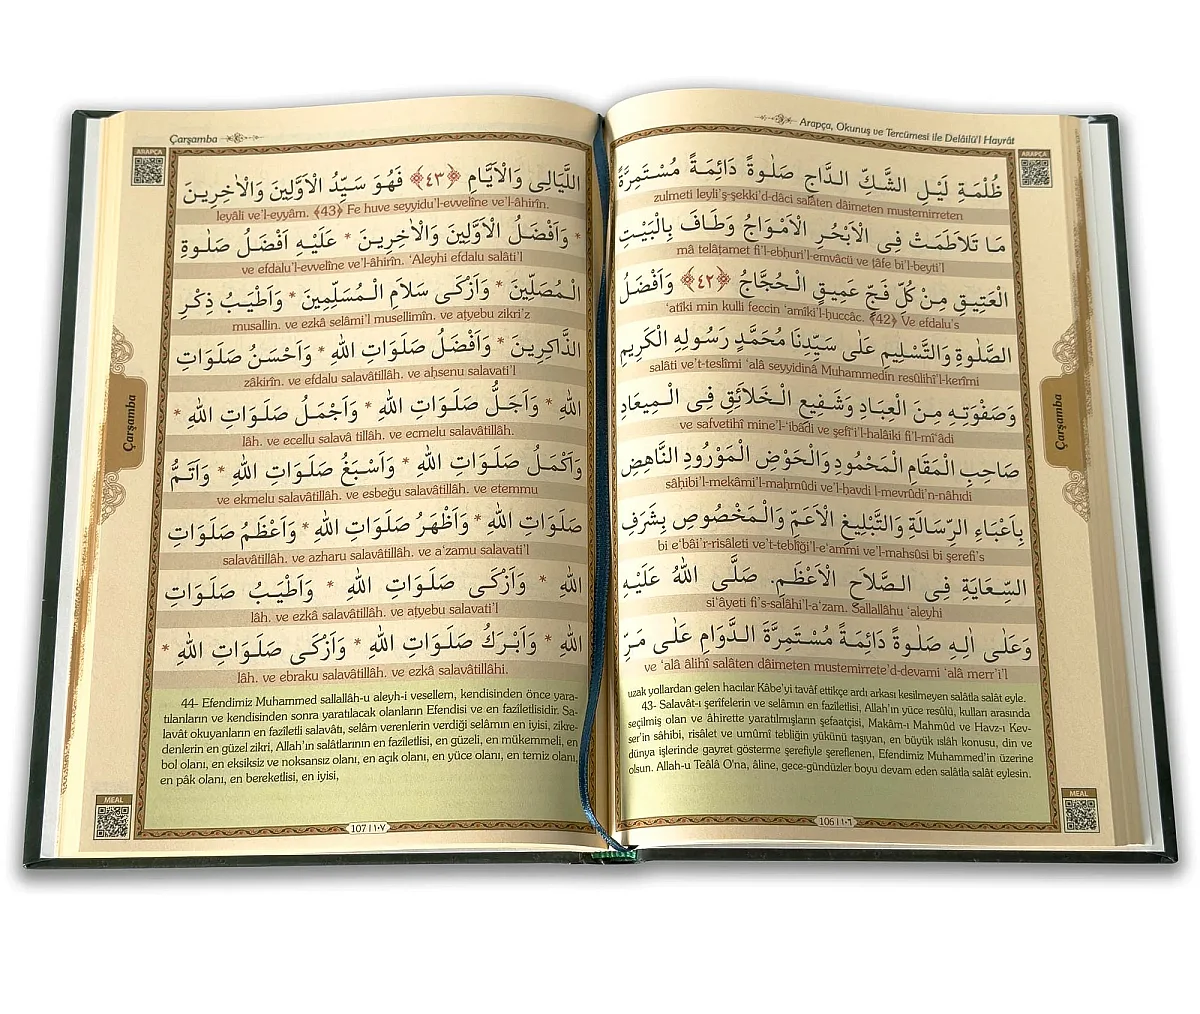 Arapça, Okunuş ve Tercümesi ile Delâilü'l Hayrât
ARAPÇA
ظُلْمَةِ لَيْلِ الشَّكِّ الدَّاجِ صَلٰوةً دَائِمَةً مُسْتَمِرَّةً
zulmeti leyli'ş-şekki'd-dâci salâten dâimeten mustemirreten
مَا تَلَاطَمَتْ فِى الْاَبْحُرِ الْاَمْوَاجُ وَطَافَ بِالْبَيْتِ
mâ telâṭamet fi'l-ebḥuri'l-emvâcü ve ṭâfe bi'l-beyti'l
الْعَتِيقِ مِنْ كُلِّ فَجٍّ عَمِيقٍ الْحُجَّاجُ ﴿٤٢﴾ وَاَفْضَلُ
'atîki min kulli feccin 'amîki'l-ḥuccâc. ﴾42﴿ Ve efdalu's
الصَّلٰوةِ وَالتَّسْلِيمِ عَلٰى سَيِّدِنَا مُحَمَّدٍ رَسُولِهِ الْكَرِيمِ
salâti ve't-teslîmi 'alâ seyyidinâ Muhammedin resûlihi'l-kerîmi
وَصَفْوَتِهِ مِنَ الْعِبَادِ وَشَفِيعِ الْخَلَائِقِ فِى الْمِيعَادِ
ve safvetihî mine'l-'ibâdi ve şefî'i'l-halâiki fi'l-mî'âdi
صَاحِبِ الْمَقَامِ الْمَحْمُودِ وَالْحَوْضِ الْمَوْرُودِ النَّاهِضِ
sâḥibi'l-mekâmi'l-maḥmûdi ve'l-ḥavdi l-mevrûdi'n-nâhıdi
بِاَعْبَاءِ الرِّسَالَةِ وَالتَّبْلِيغِ الْاَعَمِّ وَالْمَخْصُوصِ بِشَرَفِ
bi e'bâi'r-risâleti ve't-teblîği'l-e'ammi ve'l-mahsûsi bi şerefi's
السِّعَايَةِ فِى الصَّلَاحِ الْاَعْظَمِ. صَلَّى اللهُ عَلَيْهِ
si'âyeti fi's-salâhi'l-a'zam. Sallallâhu 'aleyhi
وَعَلٰى اٰلِهِ صَلٰوةً دَائِمَةً مُسْتَمِرَّةَ الدَّوَامِ عَلٰى مَرِّ
ve 'alâ âlihî salâten dâimeten mustemirrete'd-devami 'alâ merr'i'l
uzak yollardan gelen hacılar Kâbe'yi tavaf ettikçe ardı arkası kesilmeyen salâtla salât eyle.
43- Salavât-ı şerifelerin ve selâmın en fazîletlisi, Allah'ın yüce resûlü, kulları arasında
seçilmiş olan ve âhirette yaratılmışların şefaatçisi, Makâm-ı Mahmûd ve Havz-ı Kev-
ser'in sâhibi, risâlet ve umûmî tebliğin yükünü taşıyan, en büyük ıslâh konusu, din ve
dünya işlerinde gayret gösterme şerefiyle şereflenen, Efendimiz Muhammed'in üzerine
olsun. Allah-u Teâlâ O'na, âline, gece-gündüzler boyu devam eden salâtla salât eylesin.
Çarşamba
MEAL
106 | ١٠٦
Çarşamba
ARAPÇA
اللَّيَالِى وَالْاَيَّامِ ﴿٤٣﴾ فَهُوَ سَيِّدُ الْاَوَّلِينَ وَالْاٰخِرِينَ
leyâli ve'l-eyyâm. ﴾43﴿ Fe huve seyyidu'l-evvelîne ve'l-âhirîn.
* وَاَفْضَلُ الْاَوَّلِينَ وَالْاٰخِرِينَ * عَلَيْهِ اَفْضَلُ صَلٰوةِ
ve efdalu'l-evvelîne ve'l-âhirîn. 'Aleyhi efdalu salâti'l
الْمُصَلِّينَ * وَاَزْكٰى سَلَامِ الْمُسَلِّمِينَ * وَاَطْيَبُ ذِكْرِ
musallin. ve ezkâ selâmi'l musellimîn. ve aṭyebu zikri'z
الذَّاكِرِينَ * وَاَفْضَلُ صَلَوَاتِ اللهِ * وَاَحْسَنُ صَلَوَاتِ
zâkirîn. ve efdalu salavâtillâh. ve aḥsenu salavati'l
اللهِ * وَاَجَلُّ صَلَوَاتِ اللهِ * وَاَجْمَلُ صَلَوَاتِ اللهِ *
lâh. ve ecellu salavâ tillâh. ve ecmelu salavâtillâh.
وَاَكْمَلُ صَلَوَاتِ اللهِ * وَاَسْبَغُ صَلَوَاتِ اللهِ * وَاَتَمُّ
ve ekmelu salavâtillâh. ve esbeğu salavâtillâh. ve etemmu
صَلَوَاتِ اللهِ * وَاَظْهَرُ صَلَوَاتِ اللهِ * وَاَعْظَمُ صَلَوَاتِ
salavâtillâh. ve azharu salavâtillâh. ve a'zamu salavati'l
اللهِ * وَاَزْكٰى صَلَوَاتِ اللهِ * وَاَطْيَبُ صَلَوَاتِ
lâh. ve ezkâ salavâtillâh. ve aṭyebu salavati'l
اللهِ * وَاَبْرَكُ صَلَوَاتِ اللهِ * وَاَزْكٰى صَلَوَاتِ اللهِ *
lâh. ve ebraku salavâtillâh. ve ezkâ salavâtillâhi.
44- Efendimiz Muhammed sallallâh-u aleyh-i vesellem, kendisinden önce yara-
tılanların ve kendisinden sonra yaratılacak olanların Efendisi ve en fazîletlisidir. Sa-
lavât okuyanların en fazîletli salavâtı, selâm verenlerin verdiği selâmın en iyisi, zikre-
denlerin en güzel zikri, Allah'ın salâtlarının en fazîletlisi, en güzeli, en mükemmeli, en
bol olanı, en eksiksiz ve noksansız olanı, en açık olanı, en yüce olanı, en temiz olanı,
en pâk olanı, en bereketlisi, en iyisi,
Çarşamba
MEAL
107 | ١٠٧